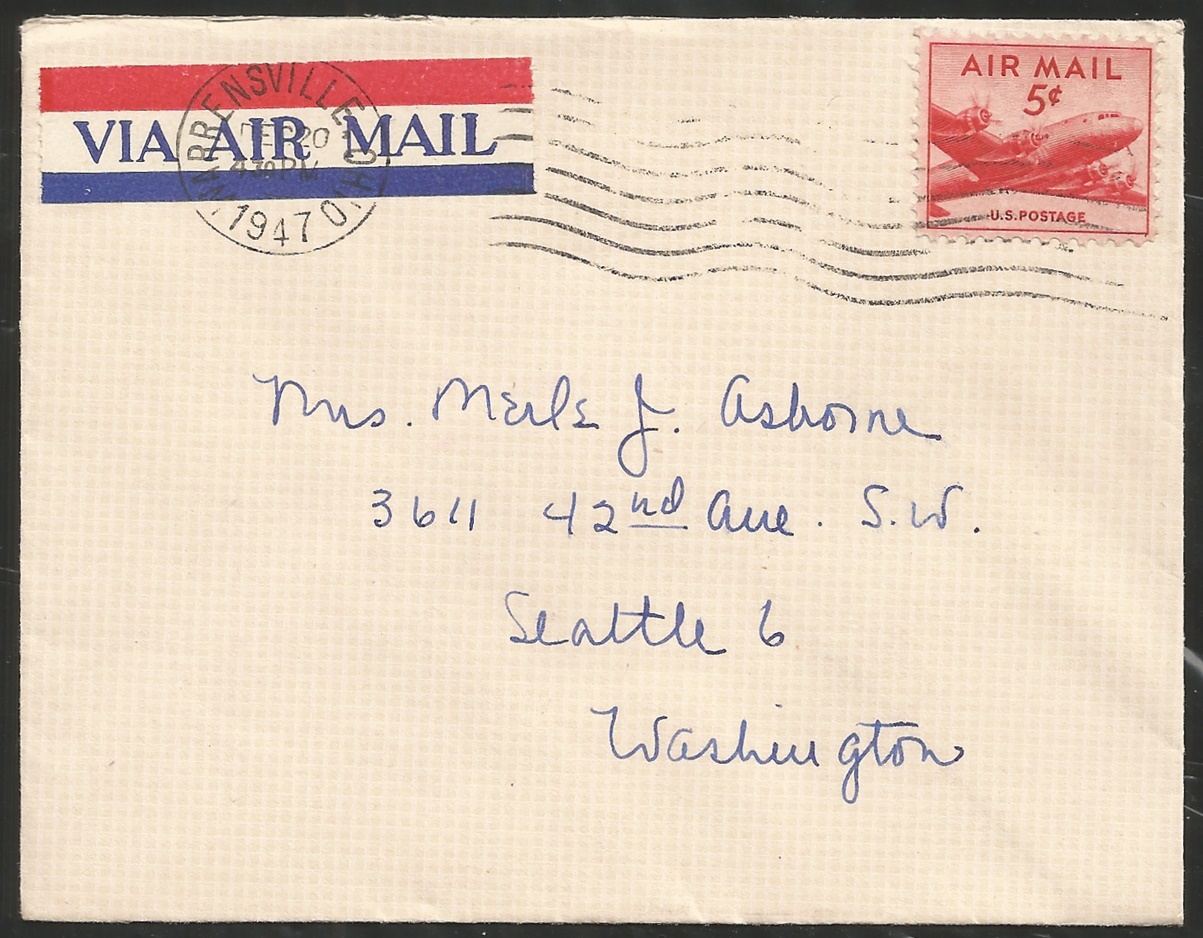 VIA AIR MAIL
WARRENSVILLE OHIO
20
430 PM
1947
AIR MAIL
5¢
U.S. POSTAGE
Mrs. Merle J. Asborne
3611 42nd Ave. S.W.
Seattle 6
Washington